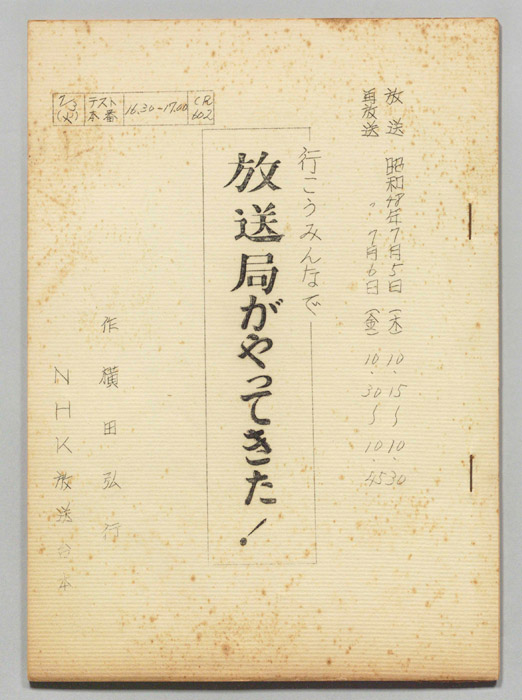 放送　昭和48年7月5日（木）10.15〜10.30
再放送　〃　7月6日（金）10.30〜10.45
7/3(火)　テスト本番　16.30〜17.00　CR602
行こうみんなで
放送局がやってきた！
作　横田弘行
NHK放送台本